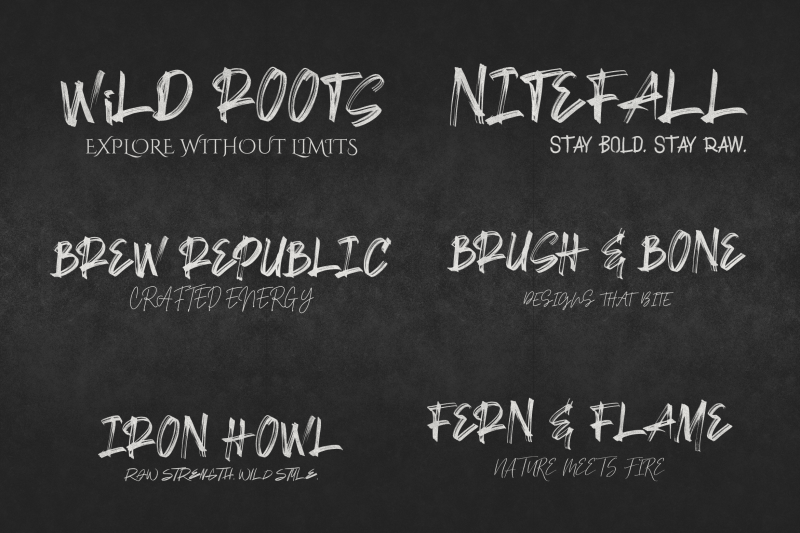 WiLD ROOTS
EXPLORE WITHOUT LIMITS
NITEFALL
STAY BOLD. STAY RAW.
BREW REPUBLIC
CRAFTED ENERGY
BRUSH & BONE
DESIGNS THAT BITE
IRON HOWL
RAW STRENGTH. WILD STYLE.
FERN & FLAME
NATURE MEETS FIRE